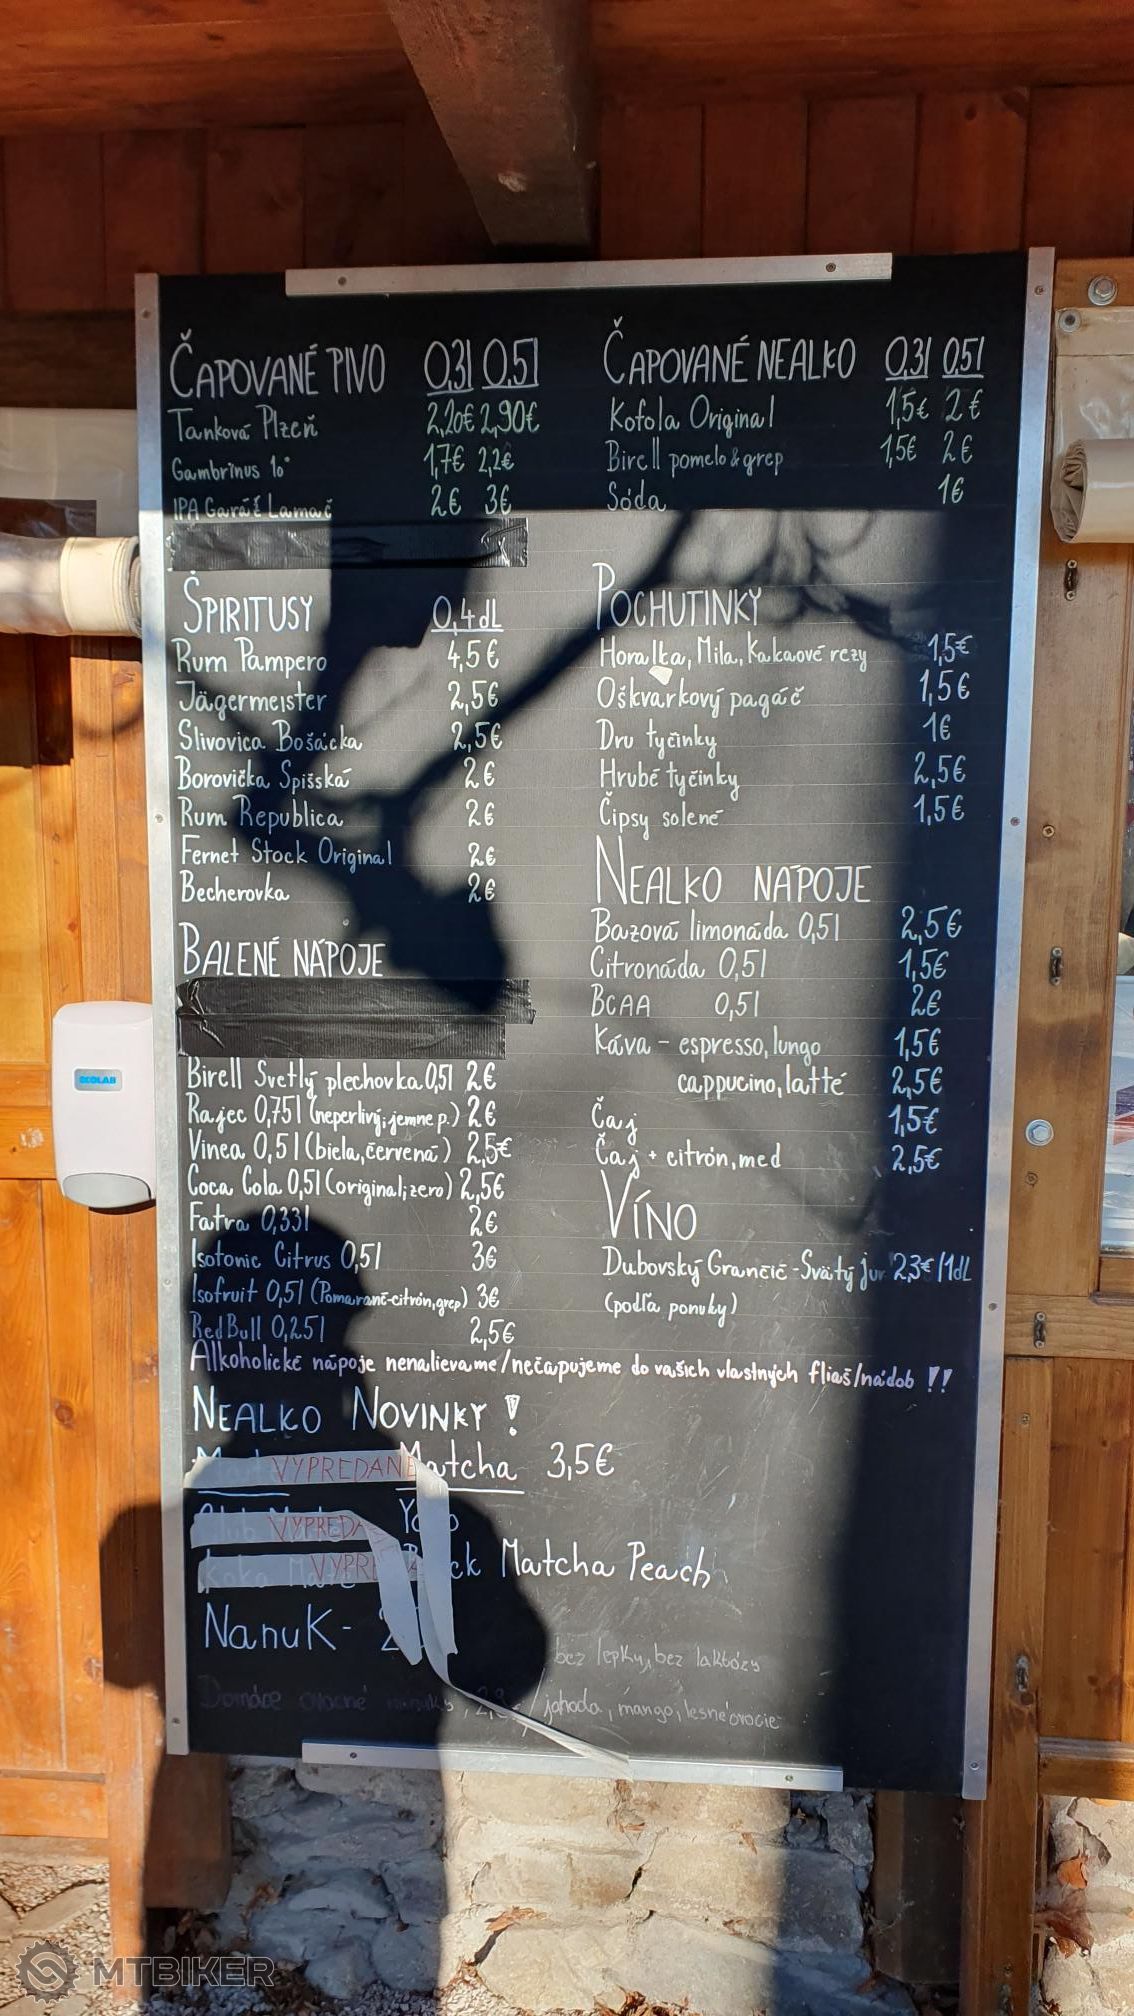 ČAPOVANÉ PIVO 0,3l 0,5l
Tanková Plzeň 2,20€ 2,90€
Gambrinus 10° 1,7€ 2,2€
IPA Garáž Lamač 2€ 3€
ŠPIRITUSY 0,4dL
Rum Pampero 4,5€
Jägermeister 2,5€
Slivovica Bošácka 2,5€
Borovička Spišská 2€
Rum Republica 2€
Fernet Stock Original 2€
Becherovka 2€
BALENÉ NÁPOJE
Birell Svetlý plechovka 0,5l 2€
Rajec 0,75l (neperlivý; jemne p.) 2€
Vinea 0,5l (biela, červená) 2,5€
Coca Cola 0,5l (original; zero) 2,5€
Fatra 0,33l 2€
Isotonic Citrus 0,5l 3€
Isofruit 0,5l (Pomaranč-citrón, grep) 3€
RedBull 0,25l 2,5€
ČAPOVANÉ NEALKO 0,3l 0,5l
Kofola Original 1,5€ 2€
Birell pomelo & grep 1,5€ 2€
Sóda 1€
POCHUTINKY
Horalka, Mila, Kakaové rezy 1,5€
Oškvarkový pagáč 1,5€
Dru tyčinky 1€
Hrubé tyčinky 2,5€
Čipsy solené 1,5€
NEALKO NÁPOJE
Bazová limonáda 0,5l 2,5€
Citronáda 0,5l 1,5€
BCAA 0,5l 2€
Káva - espresso, lungo 1,5€
cappucino, latté 2,5€
Čaj 1,5€
Čaj + citrón, med 2,5€
VÍNO
Dubovský Grančič - Svätý Jur 2,3€/1dL
(podľa ponuky)
Alkoholické nápoje nenalievame/nečapujeme do vašich vlastných fliaš/nádob !!
NEALKO NOVINKY !
VYPREDANÉ Matcha 3,5€
VYPREDA
VYPRE Matcha Peach
Nanuk -
bez lepku, bez laktózy
Domáce ovocné jahoda, mango, lesné ovocie
ECOLAB
MTBIKER